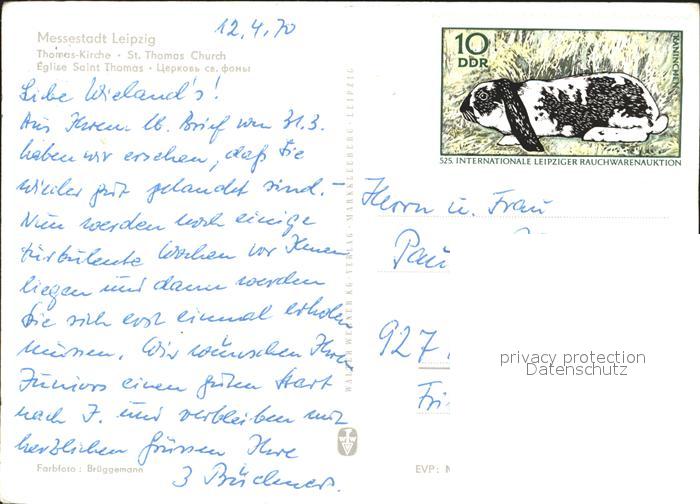 12.4.70
Messestadt Leipzig
Thomas-Kirche · St. Thomas Church
Église Saint Thomas · Церковь св. фомы
Liebe Wieland's!
Aus Ihrem lb. Brief vom 31.3.
haben wir ersehen, daß Sie
wieder gut gelandet sind. –
Nun werden noch einige
turbulente Wochen vor Ihnen
liegen und dann werden
Sie sich erst einmal erholen
müssen. Wir wünschen Ihren
Juniors einen guten Start
nach J. und verbleiben mit
herzlichen Grüssen Ihre
3 Büchners.
Farbfoto : Brüggemann
WALTER WERNER KG VERLAG · MARKKLEEBERG-LEIPZIG
10
DDR
KANINCHEN
525. INTERNATIONALE LEIPZIGER RAUCHWARENAUKTION
Herrn u. Frau
Pau
927
Fri
privacy protection
Datenschutz
EVP: